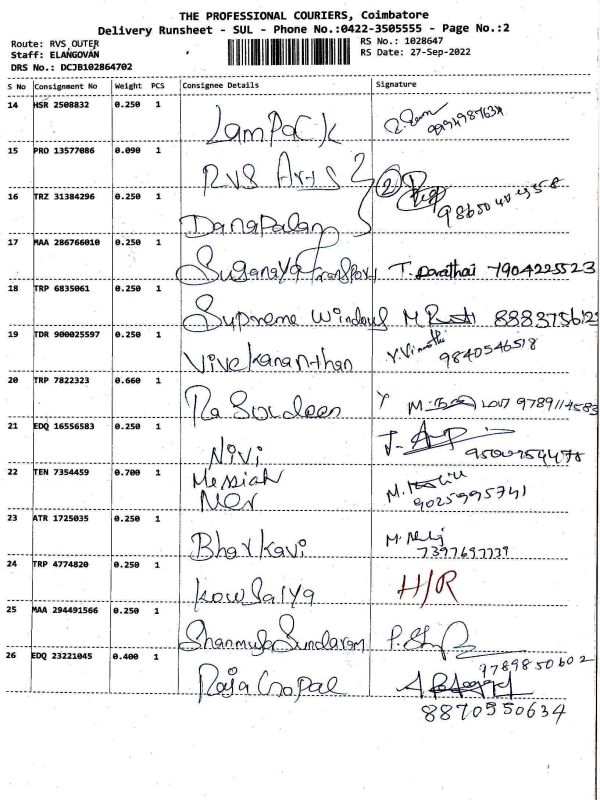 THE PROFESSIONAL COURIERS, Coimbatore
Delivery Runsheet - SUL - Phone No.:0422-3505555 - Page No.:2
Route: RVS_OUTER
RS No.: 1028647
Staff: ELANGOVAN
RS Date: 27-Sep-2022
DRS No.: DCJB102864702
S No Consignment No Weight PCS Consignee Details Signature
14 HSR 2508832 0.250 1 LamPack
15 PRO 13577086 0.090 1 RVS Arts
16 TRZ 31384296 0.250 1 Danapalan 2
17 MAA 286766010 0.250 1 Suganaya Transport T. Parathai 7904225523
18 TRP 6835061 0.250 1 Supreme Windows
19 TDR 900025597 0.250 1 Vivekananthan 9840546518
20 TRP 7822323 0.660 1
21 EDQ 16556583 0.250 1 Nivi
22 TEN 7354459 0.700 1 Messiah 9025995741
23 ATR 1725035 0.250 1 Bharkavi 7397697739
24 TRP 4774820 0.250 1 Kowsalya H/R
25 MAA 294491566 0.250 1 Shanmuga Sundaram
26 EDQ 23221045 0.400 1 Raja Gopal 9789850602
8870550634